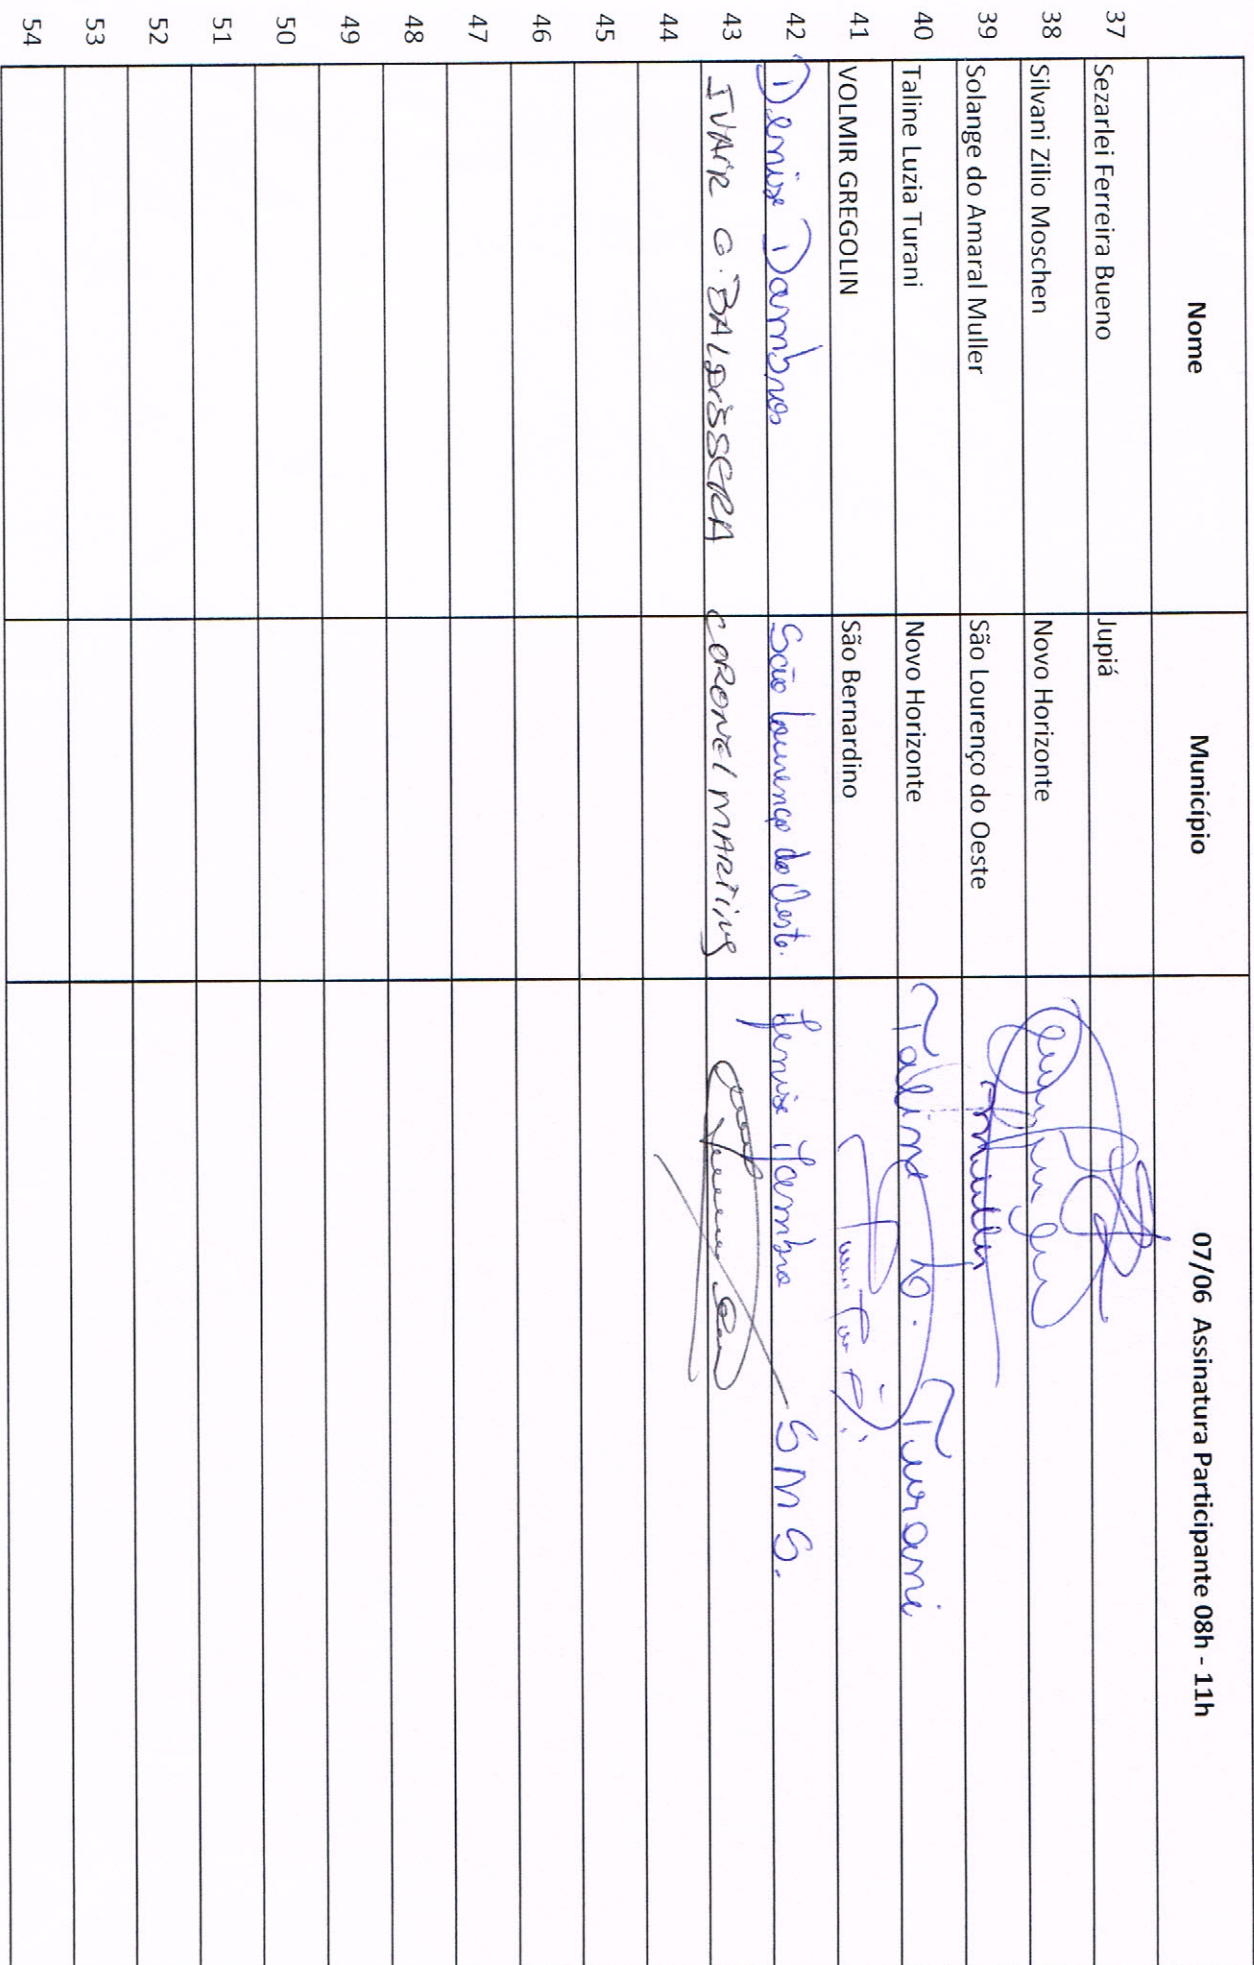 Nome Município 07/06 Assinatura Participante 08h - 11h
37 Sezarlei Ferreira Bueno Jupiá
38 Silvani Zilio Moschen Novo Horizonte
39 Solange do Amaral Muller São Lourenço do Oeste
40 Taline Luzia Turani Novo Horizonte Taline L. Turani
41 VOLMIR GREGOLIN São Bernardino
42 Denise Dambros São Lourenço do Oeste. Denise Dambro SMS.
43 IVAIR O. BALDISSERA CORONEL MARTINS
44
45
46
47
48
49
50
51
52
53
54